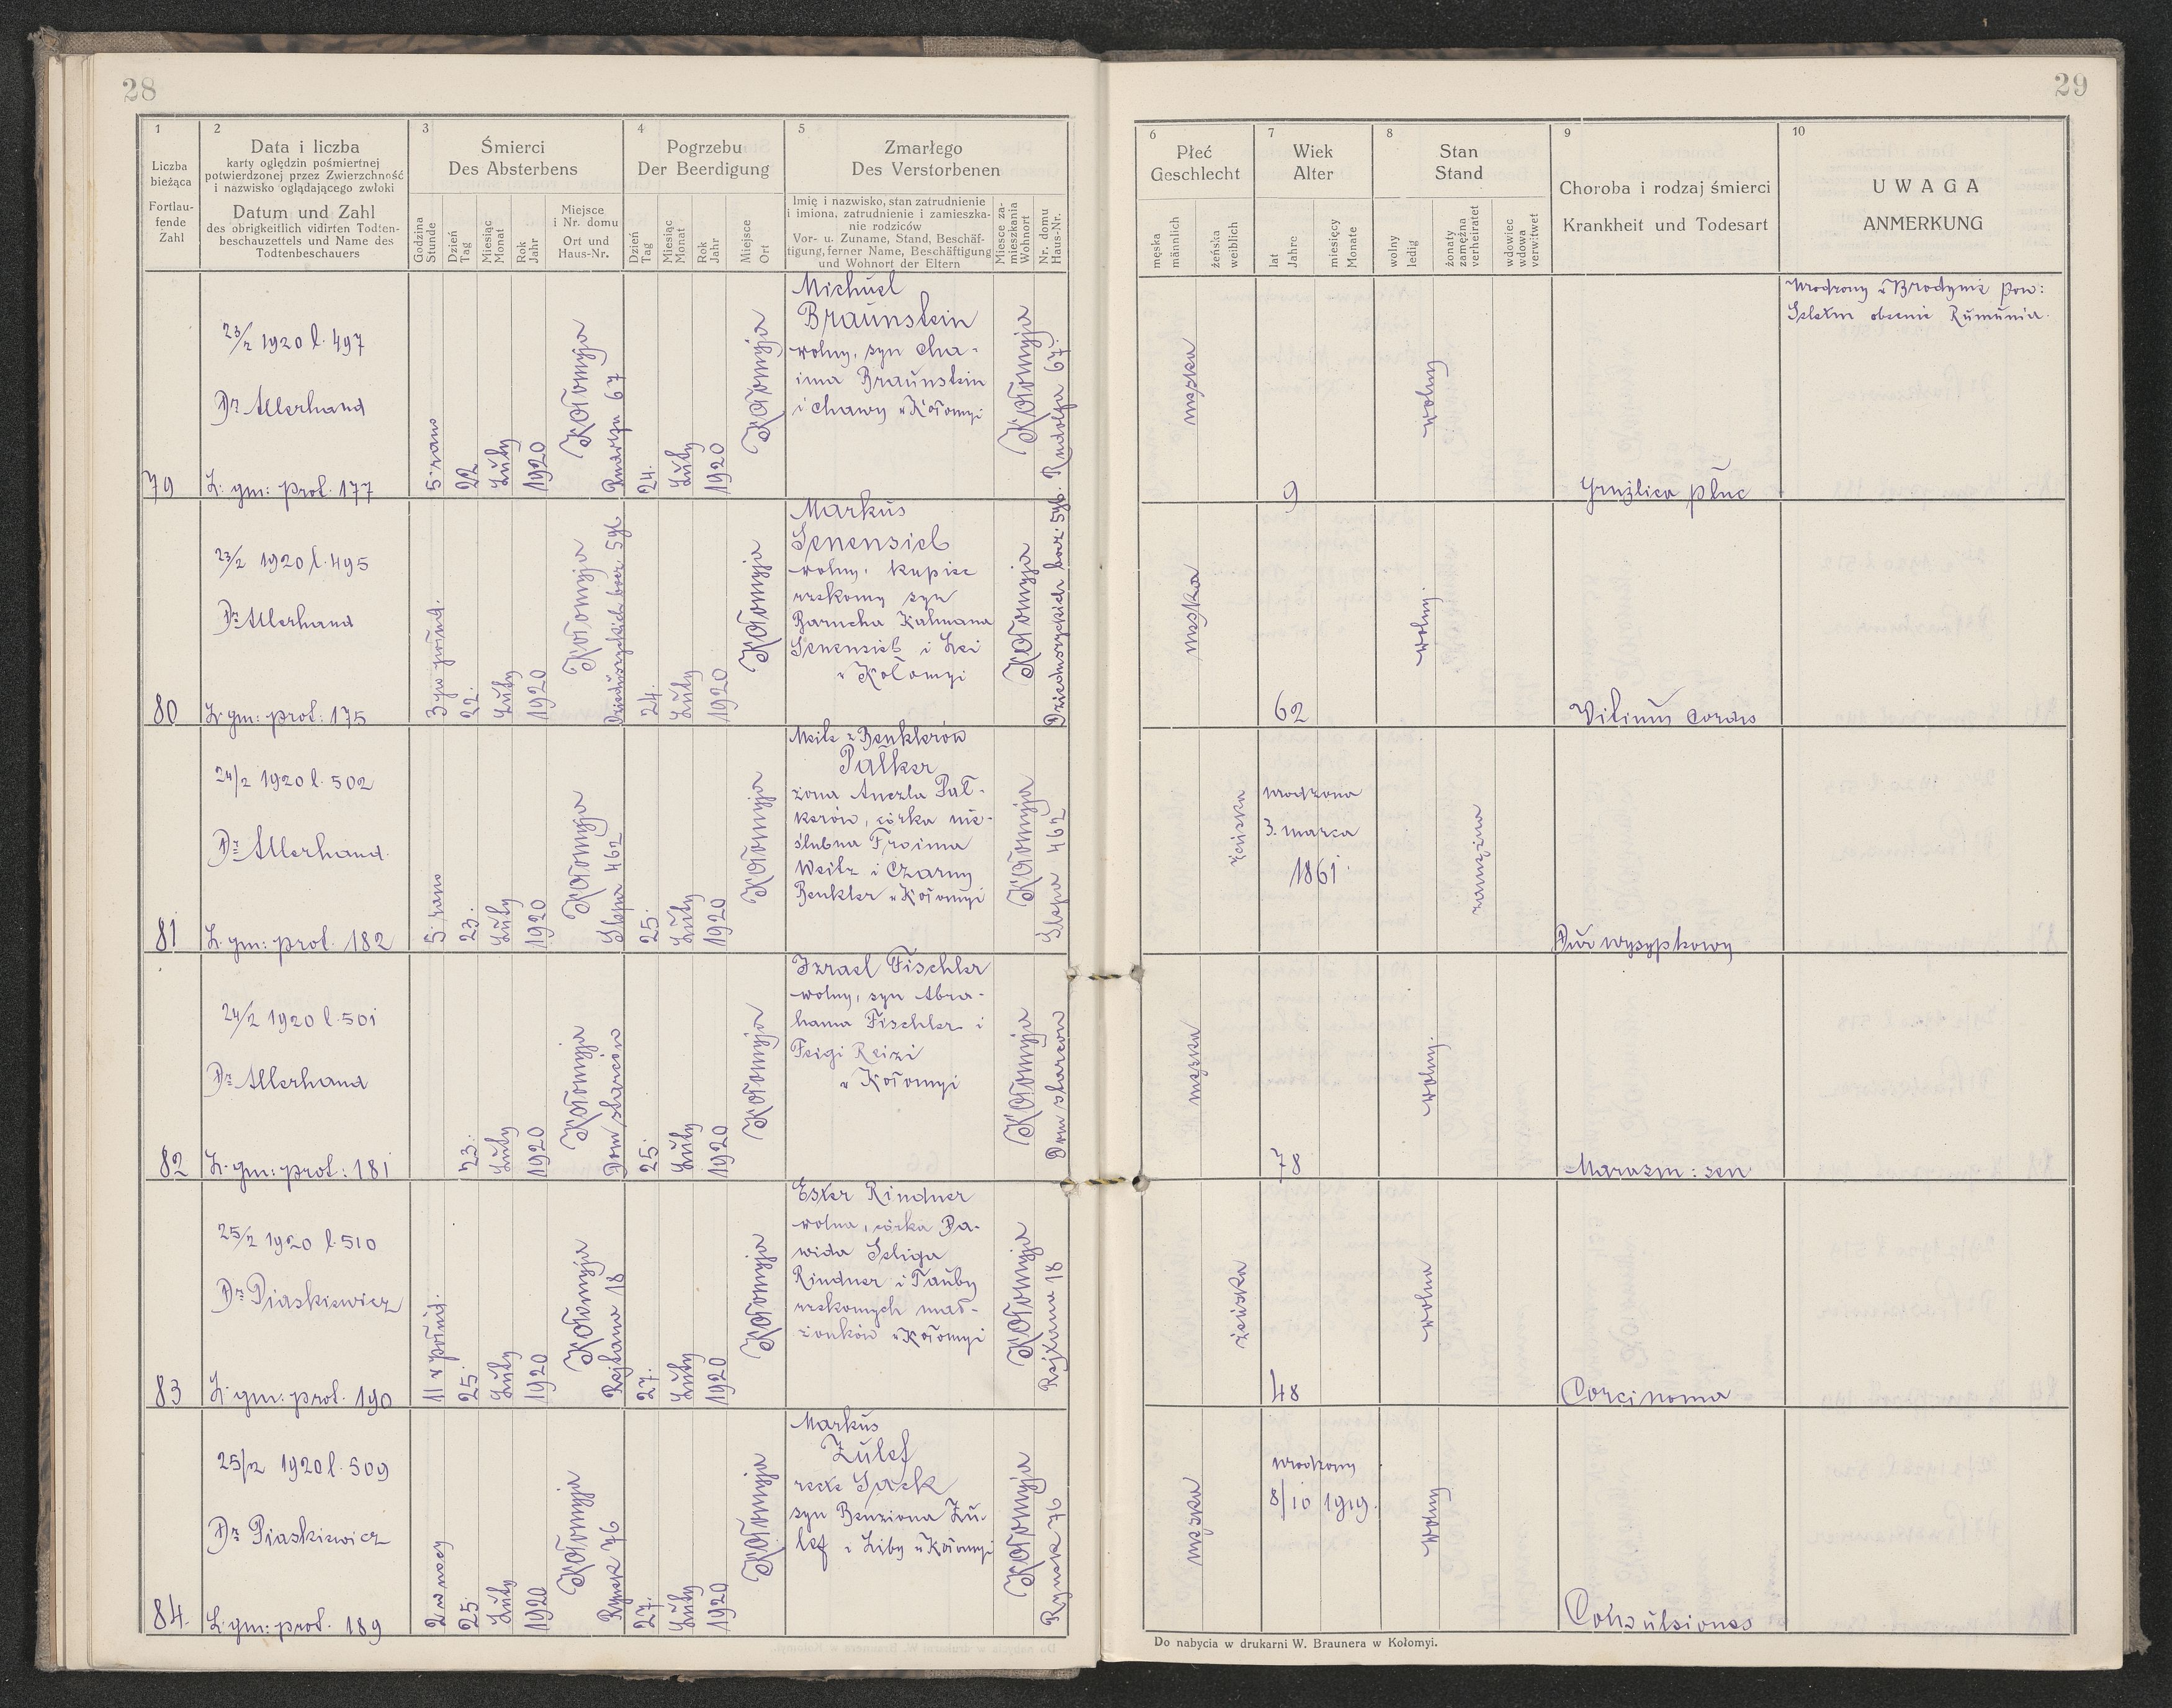 28
1
Liczba
bieżąca
Fortlau-
fende
Zahl
2
Data i liczba
karty oględzin pośmiertnej
potwierdzonej przez Zwierzchność
i nazwisko oglądającego zwłoki
Datum und Zahl
des obrigkeitlich vidirten Todten-
beschauzettels und Name des
Todtenbeschauers
3
Śmierci
Des Absterbens
Godzina
Stunde
Dzień
Tag
Miesiąc
Monat
Rok
Jahr
Miejsce
i Nr. domu
Ort und
Haus-Nr.
4
Pogrzebu
Der Beerdigung
Dzień
Tag
Miesiąc
Monat
Rok
Jahr
Miejsce
Ort
5
Zmarłego
Des Verstorbenen
Imię i nazwisko, stan zatrudnienie
i imiona, zatrudnienie i zamieszka-
nie rodziców
Vor- u. Zuname, Stand, Beschäf-
tigung, ferner Name, Beschäftigung
und Wohnort der Eltern
Miesce za-
mieszkania
Wohnort
Nr. domu
Haus-Nr.
79
23/2 1920 l. 497
Dr Allerhand
L. gm: prot. 177
5 rano
22
Luty
1920
Kołomyja
67
24.
Luty
1920
Kołomyja
Michuel
Braunstein
wolny, syn Cha-
ima Braunstein
i Chawy w Kołomyi
Kołomyja
Rudolfa 67.
80
23/2 1920 l. 495
Dr Allerhand
L. gm: prot: 175
3 po połud.
22.
Luty
1920
Kołomyja
24.
Luty
1920
Kołomyja
Markus
Senensieb
wolny, kupiec
rzekomy syn
Barucha Kalmana
Senensieb i Lei
w Kołomyi
Kołomyja
81
24/2 1920 l. 502
Dr Allerhand.
L. gm: prot. 182
5. rano
23.
Luty
1920
Kołomyja
Ślepa 462
25.
Luty
1920
Kołomyja
z Benklerów
Pałker
żona Anczla Pał-
kerów, córka nie-
ślubna Froima
Weitz i Czarny
Benkler w Kołomyi
Kołomyja
Ślepa 462
82
24/2 1920 l. 501
Dr Allerhand
L. gm: prot: 181
23.
Luty
1920
Kołomyja
Dom starców
25.
Luty
1920
Kołomyja
Izrael Fischler
wolny, syn Abra-
hama Fischler i
Feigi Reizi
w Kołomyi
Kołomyja
Dom starców
83
25/2 1920 l. 510
Dr Piaskiewicz
L. gm: prot. 190
11 w połud.
25.
Luty
1920
Kołomyja
Rejtana 18
27.
Luty
1920
Kołomyja
Ester Rindner
wolna, córka Da-
wida Seliga
Rindner i Tauby
rzekomych mał-
żonków w Kołomyi
Kołomyja
Rejtana 18
84.
25/2 1920 l. 509
Dr Piaskiewicz
L. gm: prot. 189
2 w nocy
25.
Luty
1920
Kołomyja
Rynek 76
27.
Luty
1920
Kołomyja
Markus
Zulef
recte Sack
syn Benziona Zu-
lef i Liby w Kołomyi
Kołomyja
Rynek 76
29
6
Płeć
Geschlecht
męska
männlich
żeńska
weiblich
7
Wiek
Alter
lat
Jahre
miesięcy
Monate
8
Stan
Stand
wolny
ledig
żonaty
zamężna
verheiratet
wdowiec
wdowa
verwitwet
9
Choroba i rodzaj śmierci
Krankheit und Todesart
10
UWAGA
ANMERKUNG
męska
9
wolny
Gruźlica płuc
Urodzony w Brodynie pow:
Seletin obecnie Rumunia.
męska
62
wolny.
Vitium cordis
żeńska
urodzona
3. marca
1861.
zamężna
Dur wysypkowy
męska
78
wolny.
Marasm: sen
żeńska
48
wolna
Carcinoma
męska
urodzony
8/10 1919.
wolny
Convulsiones
Do nabycia w drukarni W. Braunera w Kołomyi.